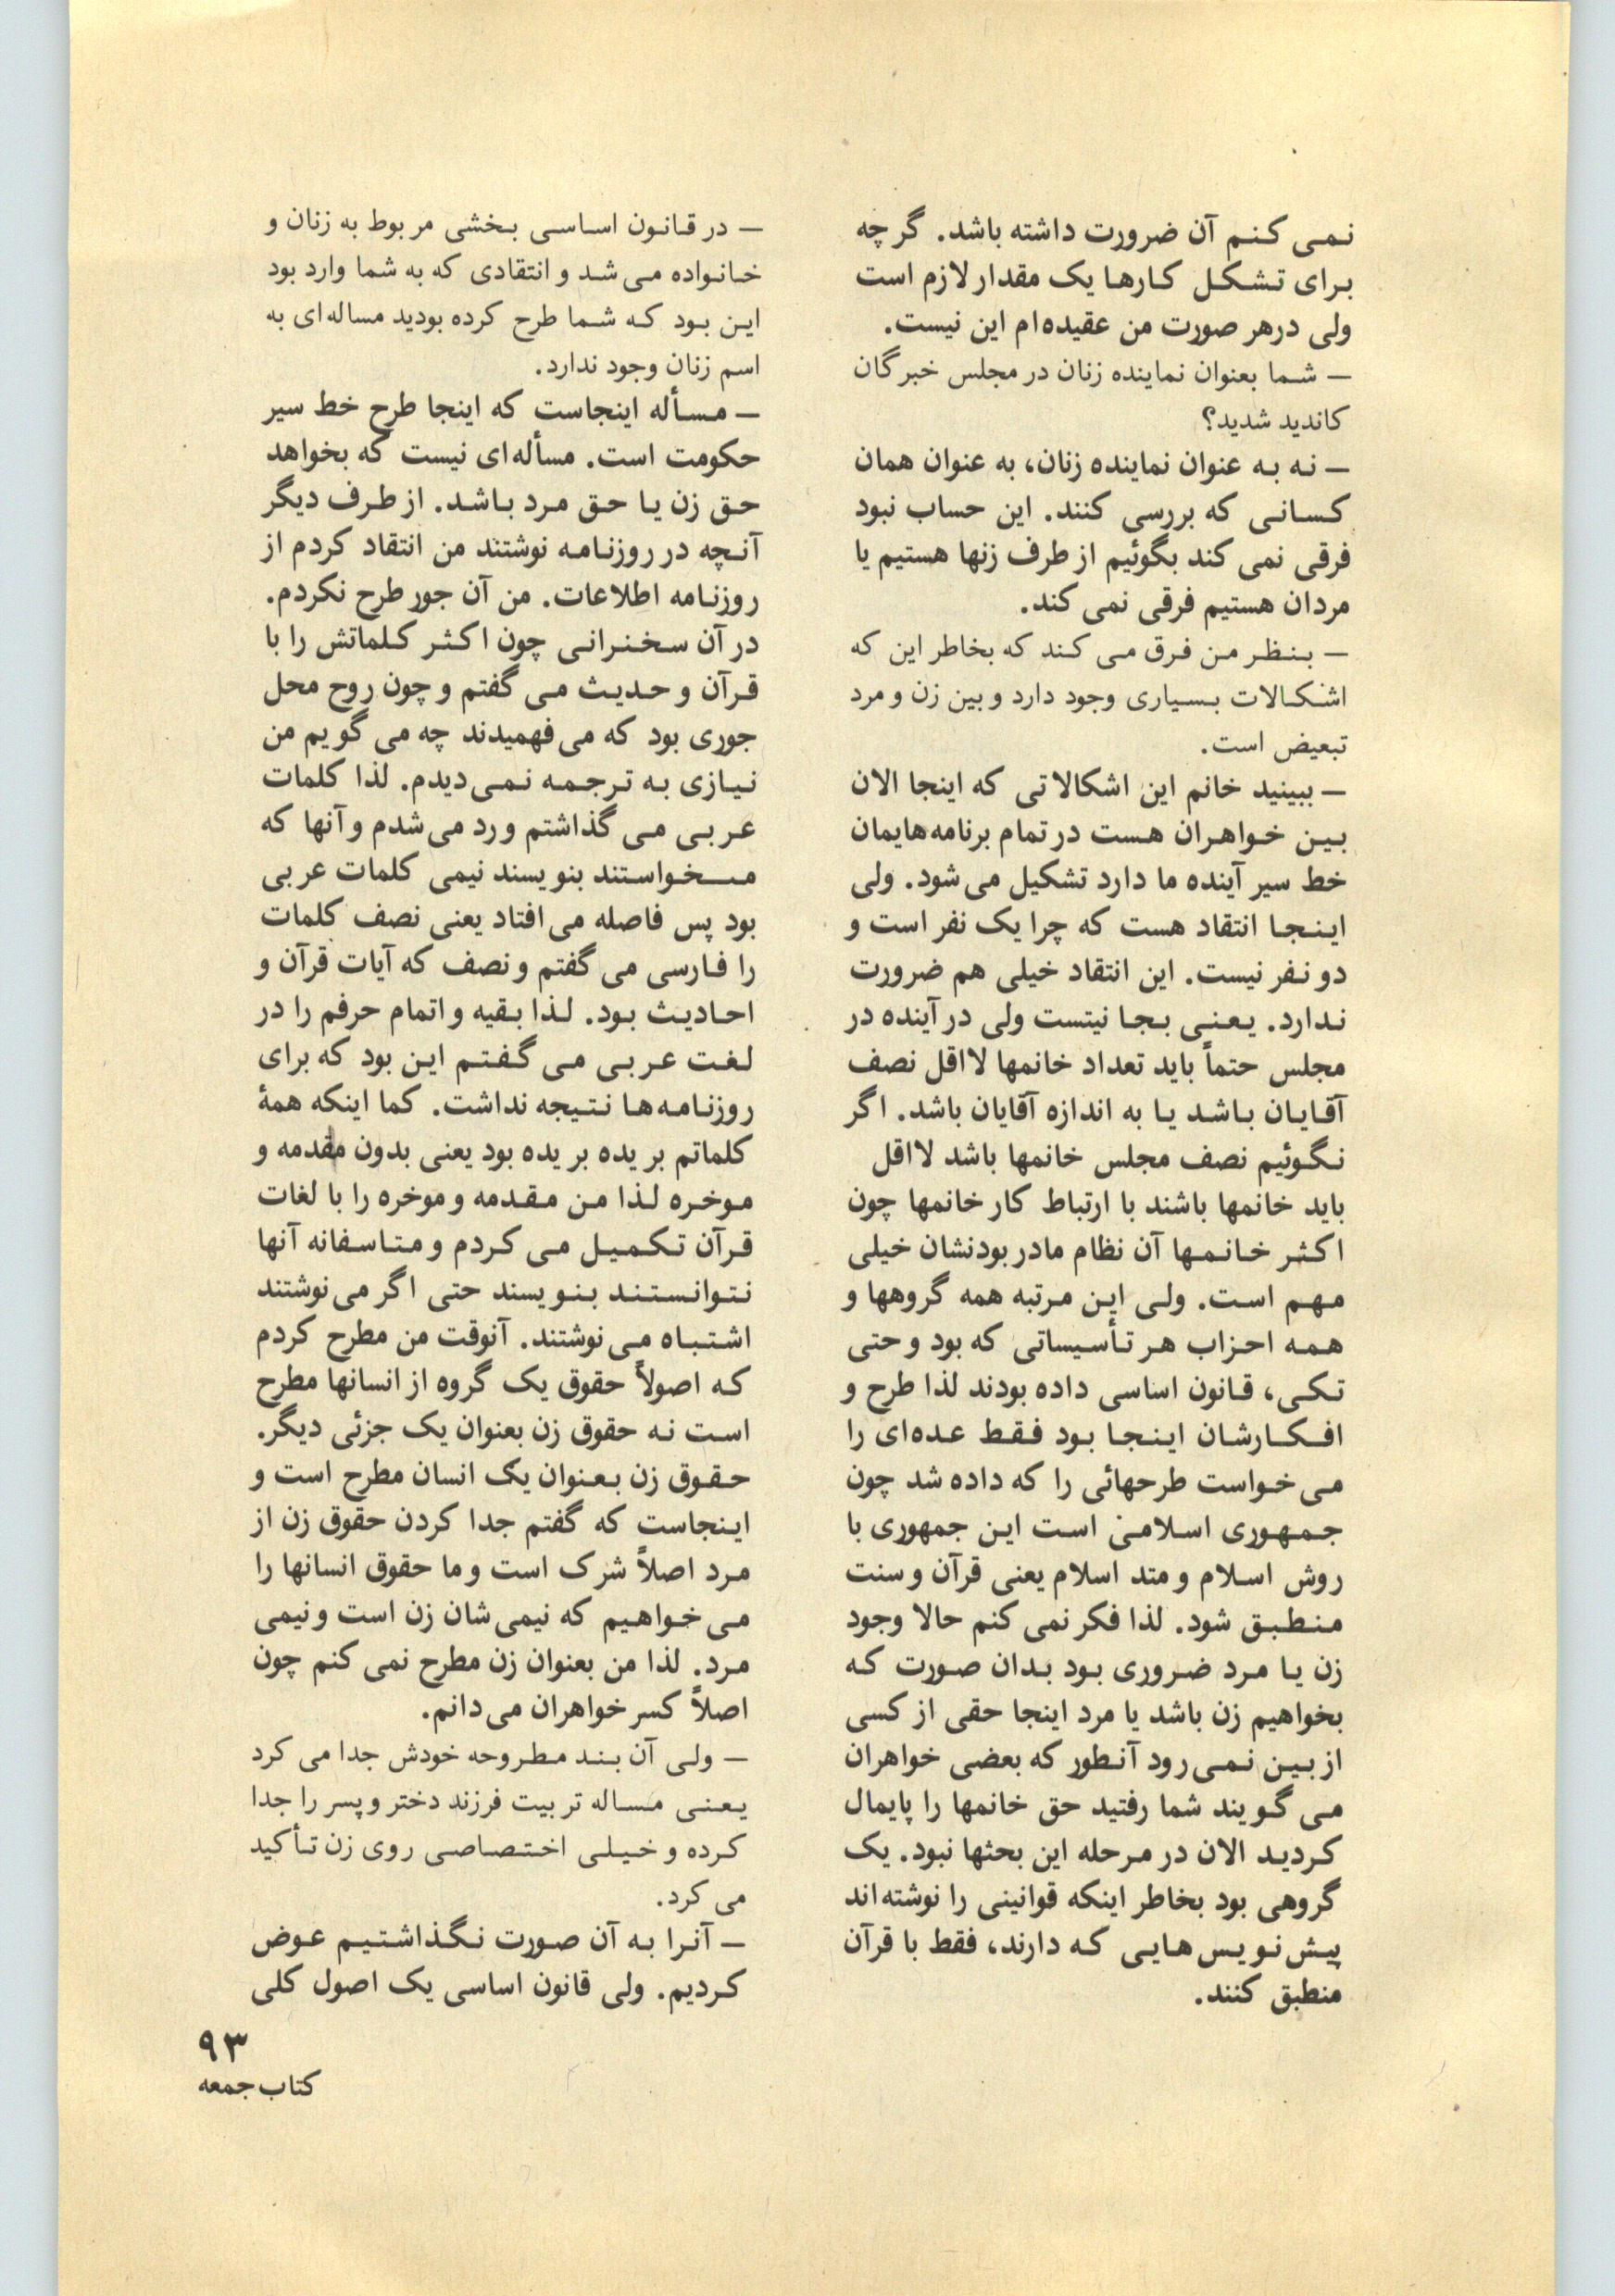 نمی کنم آن ضرورت داشته باشد. گرچه
برای تشکل کارها یک مقدار لازم است
ولی درهر صورت من عقیده‌ام این نیست.
— شما بعنوان نماینده زنان در مجلس خبرگان
کاندید شدید؟
— نه به عنوان نماینده زنان، به عنوان همان
کسانی که بررسی کنند. این حساب نبود
فرقی نمی کند بگوئیم از طرف زنها هستیم یا
مردان هستیم فرقی نمی کند.
— بنظر من فرق می کند که بخاطر این که
اشکالات بسیاری وجود دارد و بین زن و مرد
تبعیض است.
— ببینید خانم این اشکالاتی که اینجا الان
بین خواهران هست در تمام برنامه‌هایمان
خط سیر آینده ما دارد تشکیل می‌شود. ولی
اینجا انتقاد هست که چرا یک نفر است و
دو نفر نیست. این انتقاد خیلی هم ضرورت
ندارد. یعنی بجا نیتست ولی در آینده در
مجلس حتماً باید تعداد خانمها لااقل نصف
آقایان باشد یا به اندازه آقایان باشد. اگر
نگوئیم نصف مجلس خانمها باشد لااقل
باید خانمها باشند با ارتباط کار خانمها چون
اکثر خانمها آن نظام مادر بودنشان خیلی
مهم است. ولی این مرتبه همه گروهها و
همه احزاب هر تأسیساتی که بود و حتی
تکی، قانون اساسی داده بودند لذا طرح و
افکارشان اینجا بود فقط عده‌ای را
می‌خواست طرحهائی را که داده شد چون
جمهوری اسلامی است این جمهوری با
روش اسلام و متد اسلام یعنی قرآن و سنت
منطبق شود. لذا فکر نمی کنم حالا وجود
زن یا مرد ضروری بود بدان صورت که
بخواهیم زن باشد یا مرد اینجا حقی از کسی
از بین نمی‌رود آنطور که بعضی خواهران
می گویند شما رفتید حق خانمها را پایمال
کردید الان در مرحله این بحثها نبود. یک
گروهی بود بخاطر اینکه قوانینی را نوشته‌اند
پیش‌نویس‌هایی که دارند، فقط با قرآن
منطبق کنند.
— در قانون اساسی بخشی مربوط به زنان و
خانواده می‌شد و انتقادی که به شما وارد بود
این بود که شما طرح کرده بودید مساله‌ای به
اسم زنان وجود ندارد.
— مسأله اینجاست که اینجا طرح خط سیر
حکومت است. مسأله‌ای نیست که بخواهد
حق زن یا حق مرد باشد. از طرف دیگر
آنچه در روزنامه نوشتند من انتقاد کردم از
روزنامه اطلاعات. من آن جور طرح نکردم.
در آن سخنرانی چون اکثر کلماتش را با
قرآن و حدیث می گفتم و چون روح محل
جوری بود که می‌فهمیدند چه می گویم من
نیازی به ترجمه نمی‌دیدم. لذا کلمات
عربی می گذاشتم و رد می‌شدم و آنها که
مـخواستند بنویسند نیمی کلمات عربی
بود پس فاصله می‌افتاد یعنی نصف کلمات
را فارسی می گفتم و نصف که آیات قرآن و
احادیث بود. لذا بقیه و اتمام حرفم را در
لغت عربی می گفتم این بود که برای
روزنامه‌ها نتیجه نداشت. کما اینکه همهٔ
کلماتم بریده بریده بود یعنی بدون مقدمه و
موخره لذا من مقدمه و موخره را با لغات
قرآن تکمیل می کردم و متاسفانه آنها
نتوانستند بنویسند حتی اگر می‌نوشتند
اشتباه می‌نوشتند. آنوقت من مطرح کردم
که اصولاً حقوق یک گروه از انسانها مطرح
است نه حقوق زن بعنوان یک جزئی دیگر.
حقوق زن بعنوان یک انسان مطرح است و
اینجاست که گفتم جدا کردن حقوق زن از
مرد اصلاً شرک است و ما حقوق انسانها را
می‌خواهیم که نیمی‌شان زن است و نیمی
مرد. لذا من بعنوان زن مطرح نمی کنم چون
اصلاً کسر خواهران می‌دانم.
— ولی آن بند مطروحه خودش جدا می کرد
یعنی مساله تربیت فرزند دختر و پسر را جدا
کرده و خیلی اختصاصی روی زن تأکید
می کرد.
— آنرا به آن صورت نگذاشتیم عوض
کردیم. ولی قانون اساسی یک اصول کلی
۹۳
کتاب جمعه